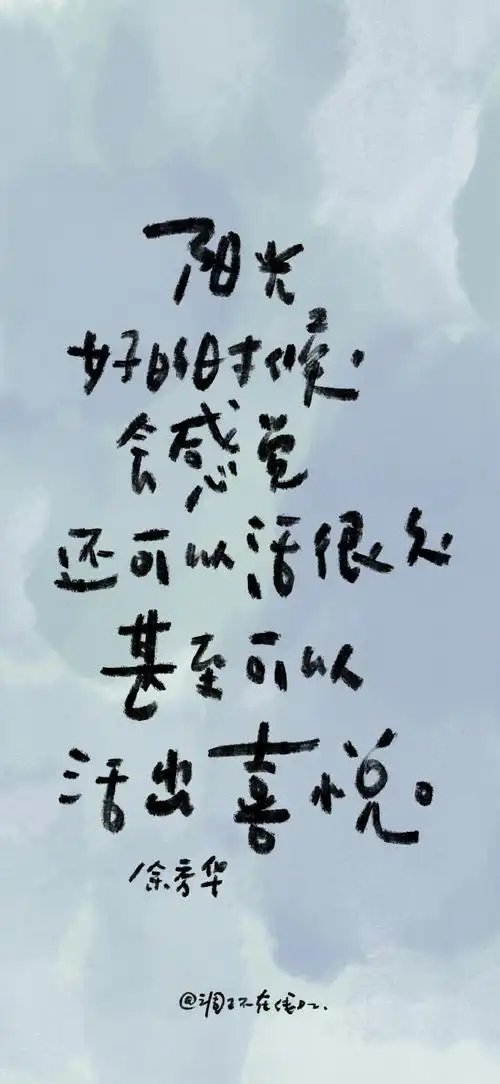 阳光
好的时候
会感觉
还可以活很久
甚至可以
活出喜悦。
余秀华